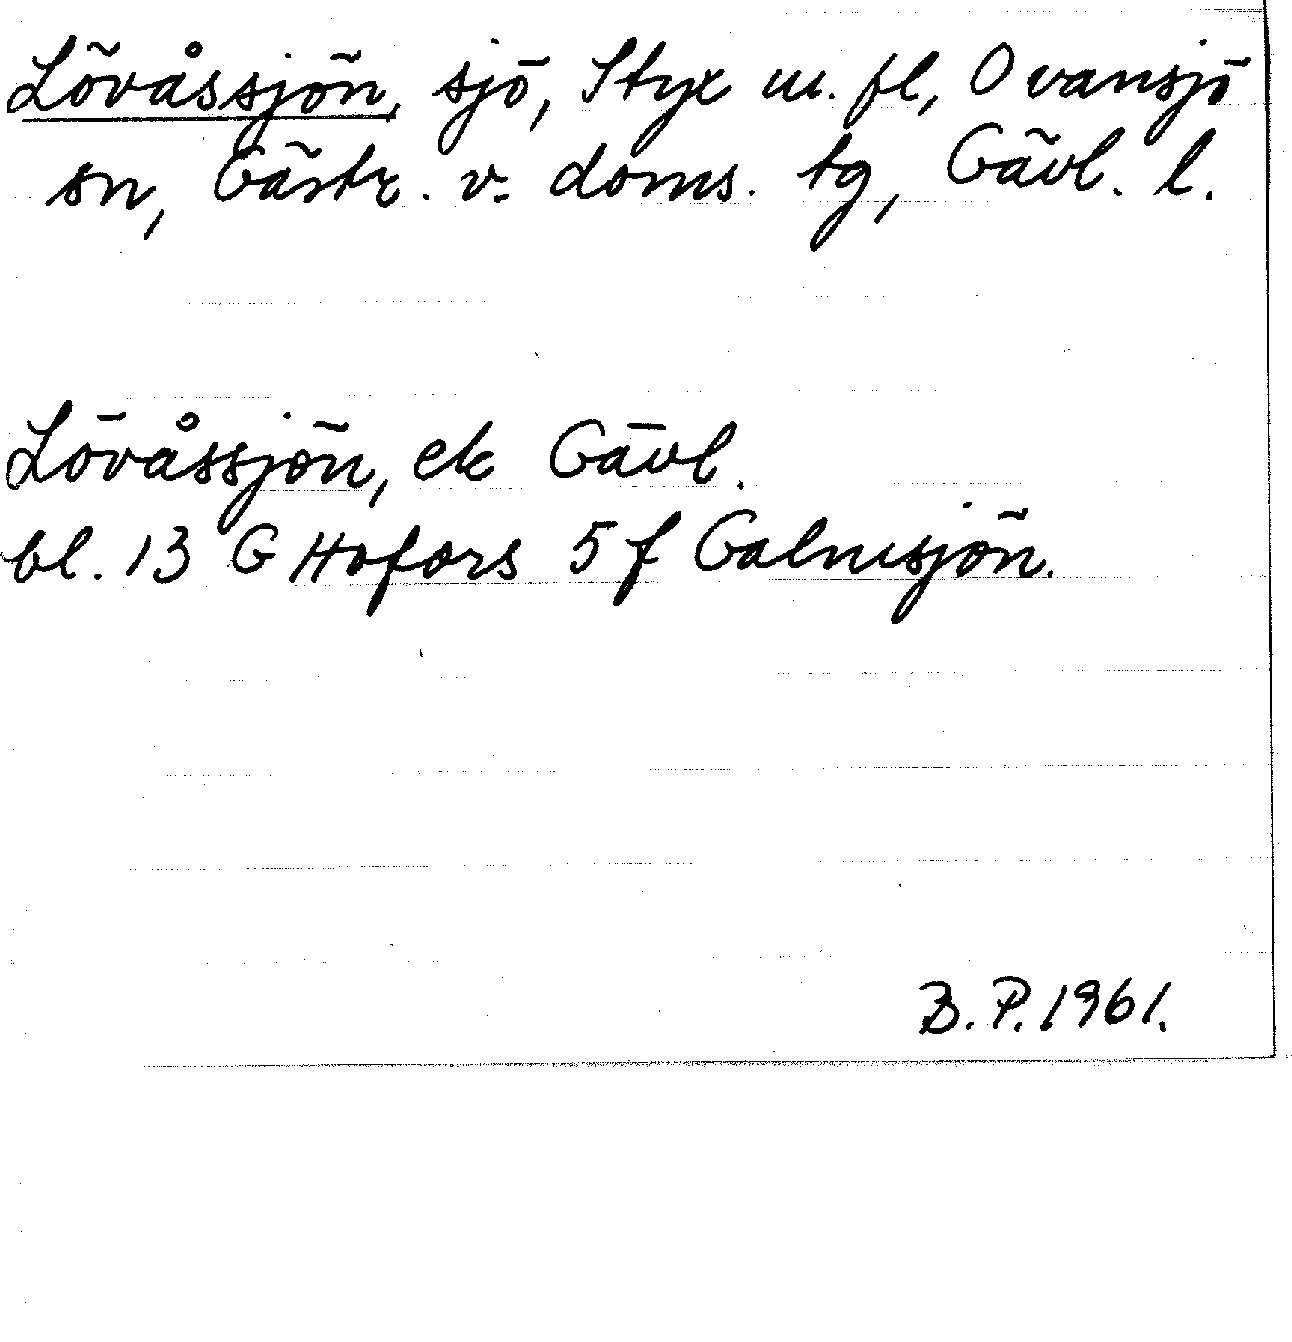 Lövåssjön, sjö, Styx m. fl, Ovansjö
sn, Gästr. v. doms. tg, Gävl. l.
Lövåssjön, ek Gävl.
bl. 13 G Hofors 5 f Galmsjön.
B. P. 1961.